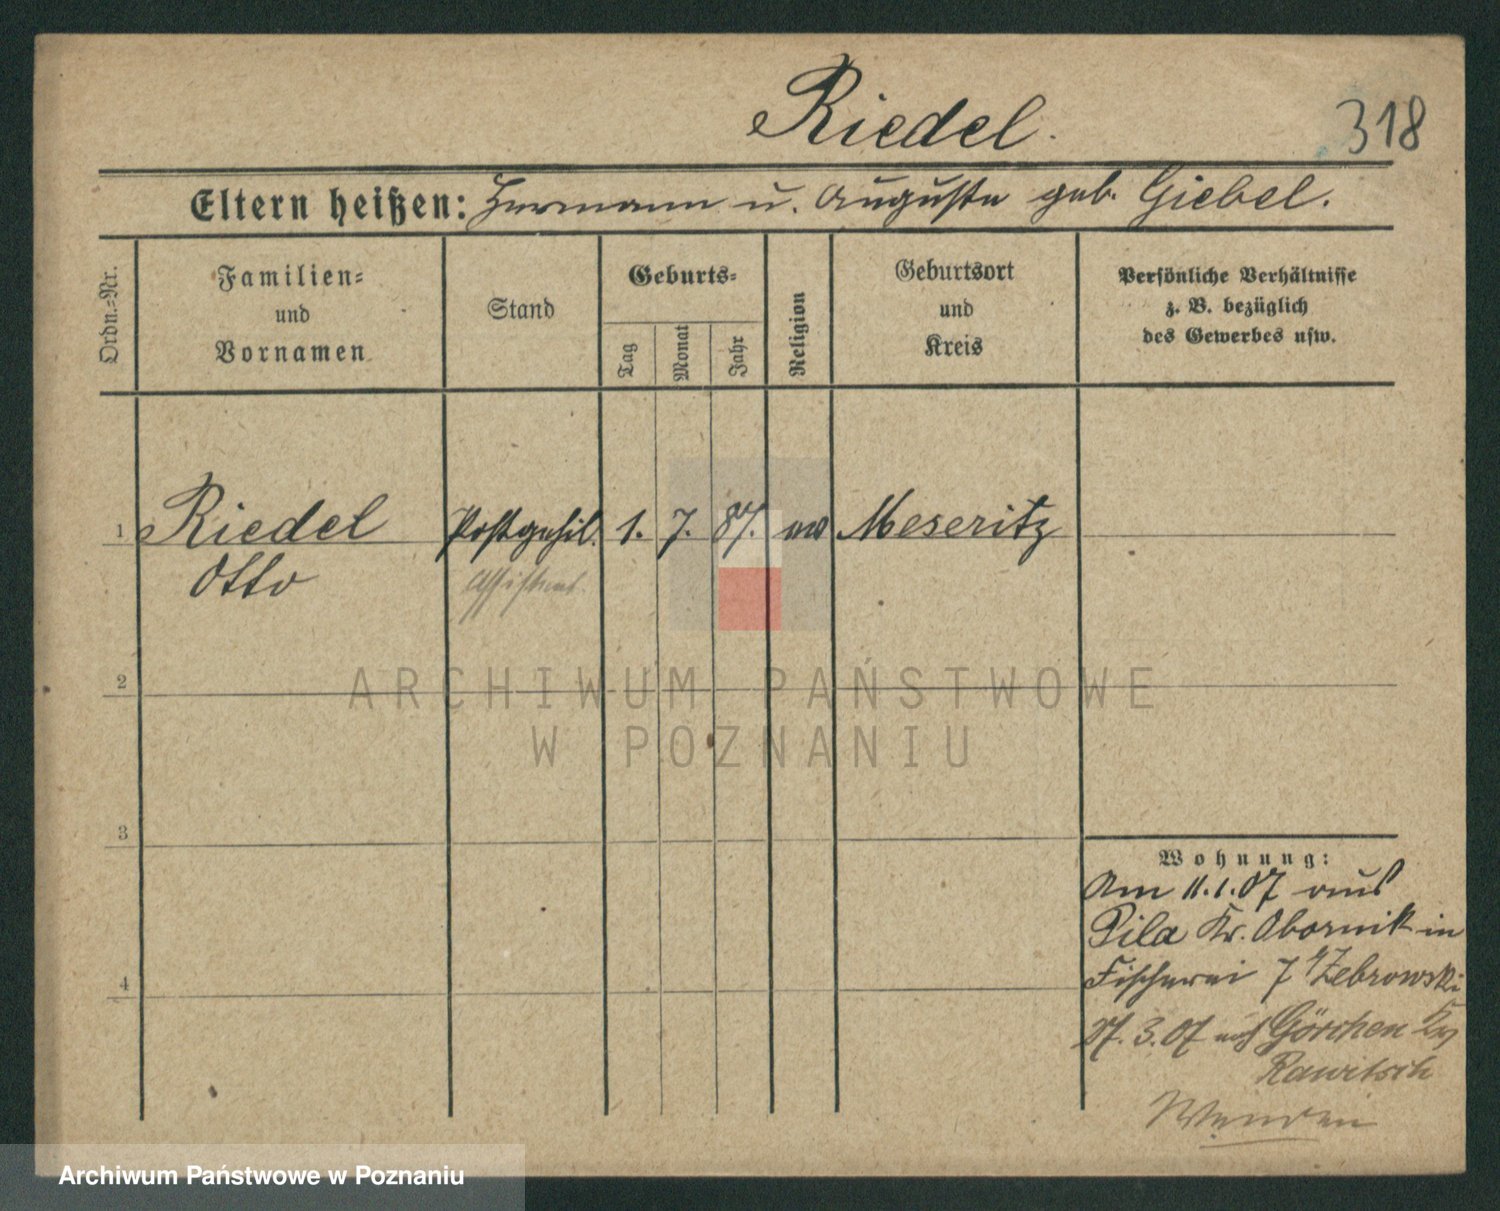 Riedel.
318
Eltern heißen: Hermann u. Auguste geb. Giebel.
Ordn.-Nr.
Familien-
und
Vornamen
Stand
Geburts-
Tag
Monat
Jahr
Religion
Geburtsort
und
Kreis
Persönliche Verhältnisse
z. B. bezüglich
des Gewerbes usw.
1 Riedel Postgehil. 1. 7. 87. ev Meseritz
Otto
Assistent.
2
3
4
Wohnung:
Am 11.1.07 aus
Pila Kr. Obornik in
Fischerei 7 Zebrowski
27.3.07 nach Görchen Kr
Rawitsch
ARCHIWUM PAŃSTWOWE
W POZNANIU
Archiwum Państwowe w Poznaniu